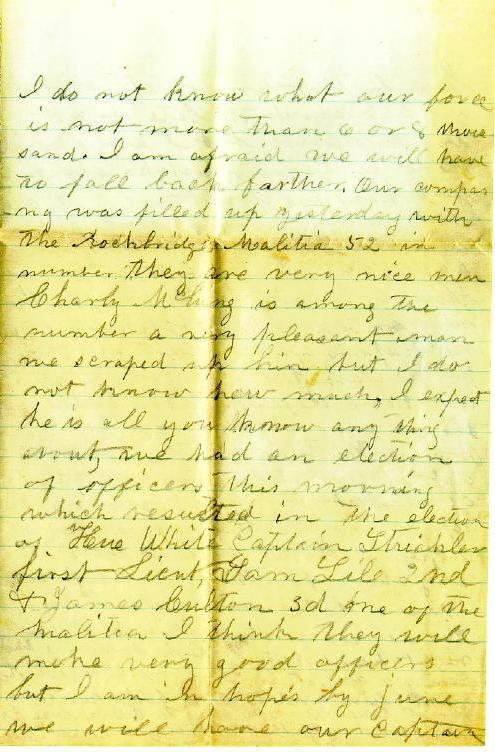 I do not know what our force
is not more than 6 or 8 thou
sand. I am afraid we will have
to fall back farther. Our compa
ny was filled up yesterday with
the Rockbridge Malitia 52 in
number they are very nice men
Charly McClung is among the
number a very pleasant man
we scraped up kin, but I do
not know how much, I expect
he is all you know any thing
about, we had an election
of officers this morning
which resulted in the election
of White Captain Strickler
first Lieut, Sam Lile 2nd
& James Culton 3d one of the
Malitia I think they will
make very good officers
but I am in hopes by June
we will have our Captain